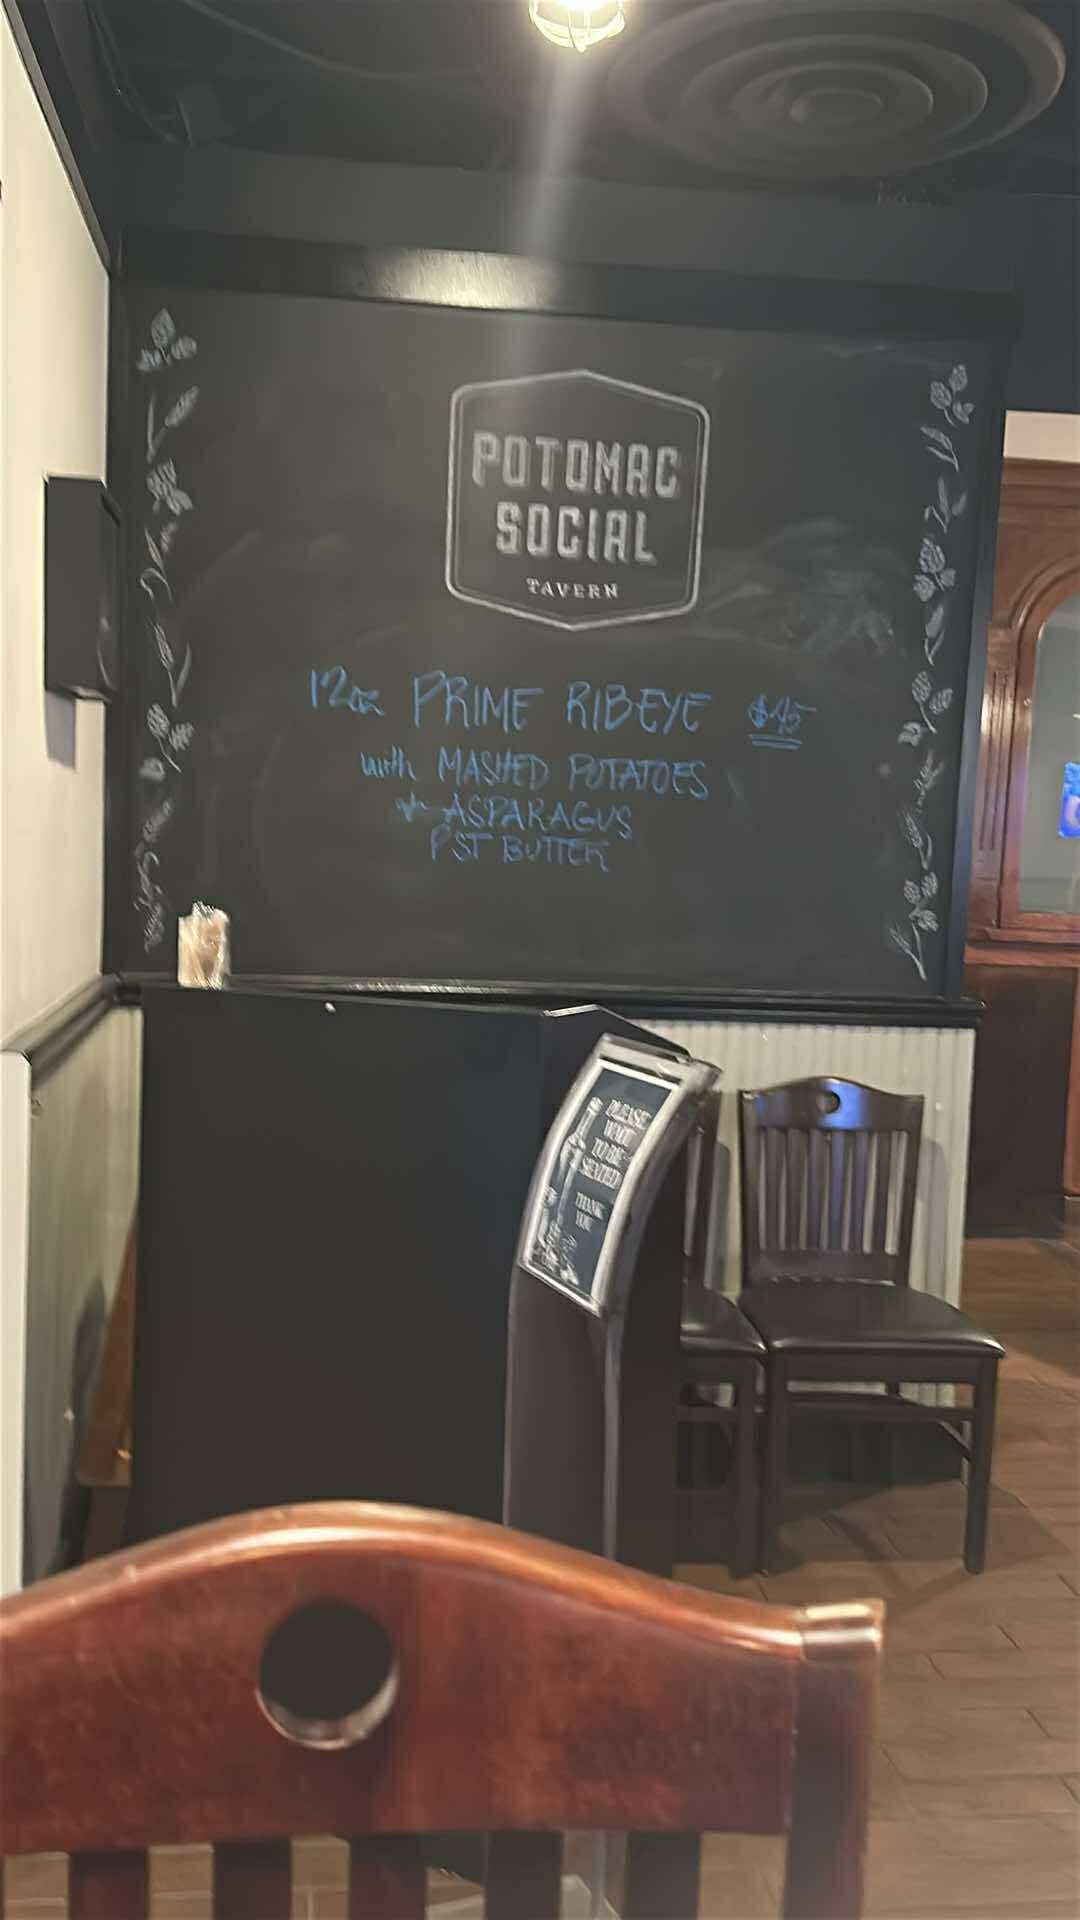 POTOMAC
SOCIAL
TAVERN
12oz PRIME RIBEYE $45
with MASHED POTATOES
+ ASPARAGUS
PST BUTTER
PLEASE
WAIT
TO BE
SEATED
THANK
YOU